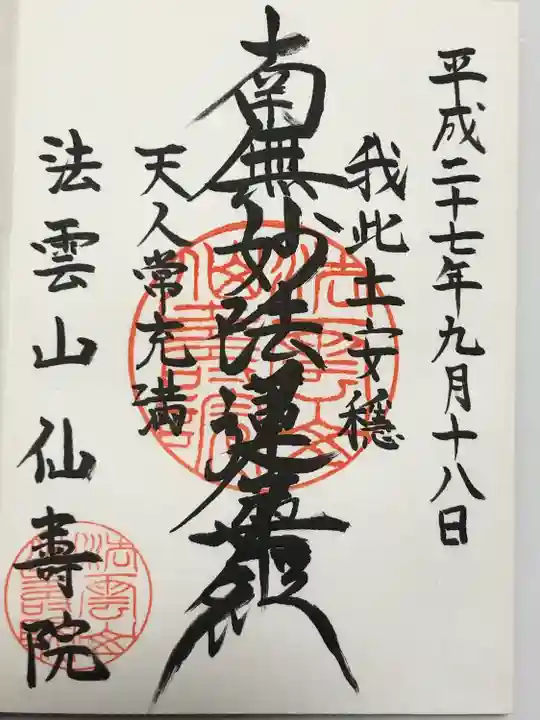 平成二十七年九月十八日
我此土安穏
南無妙法蓮華経
天人常充満
法雲山仙壽院